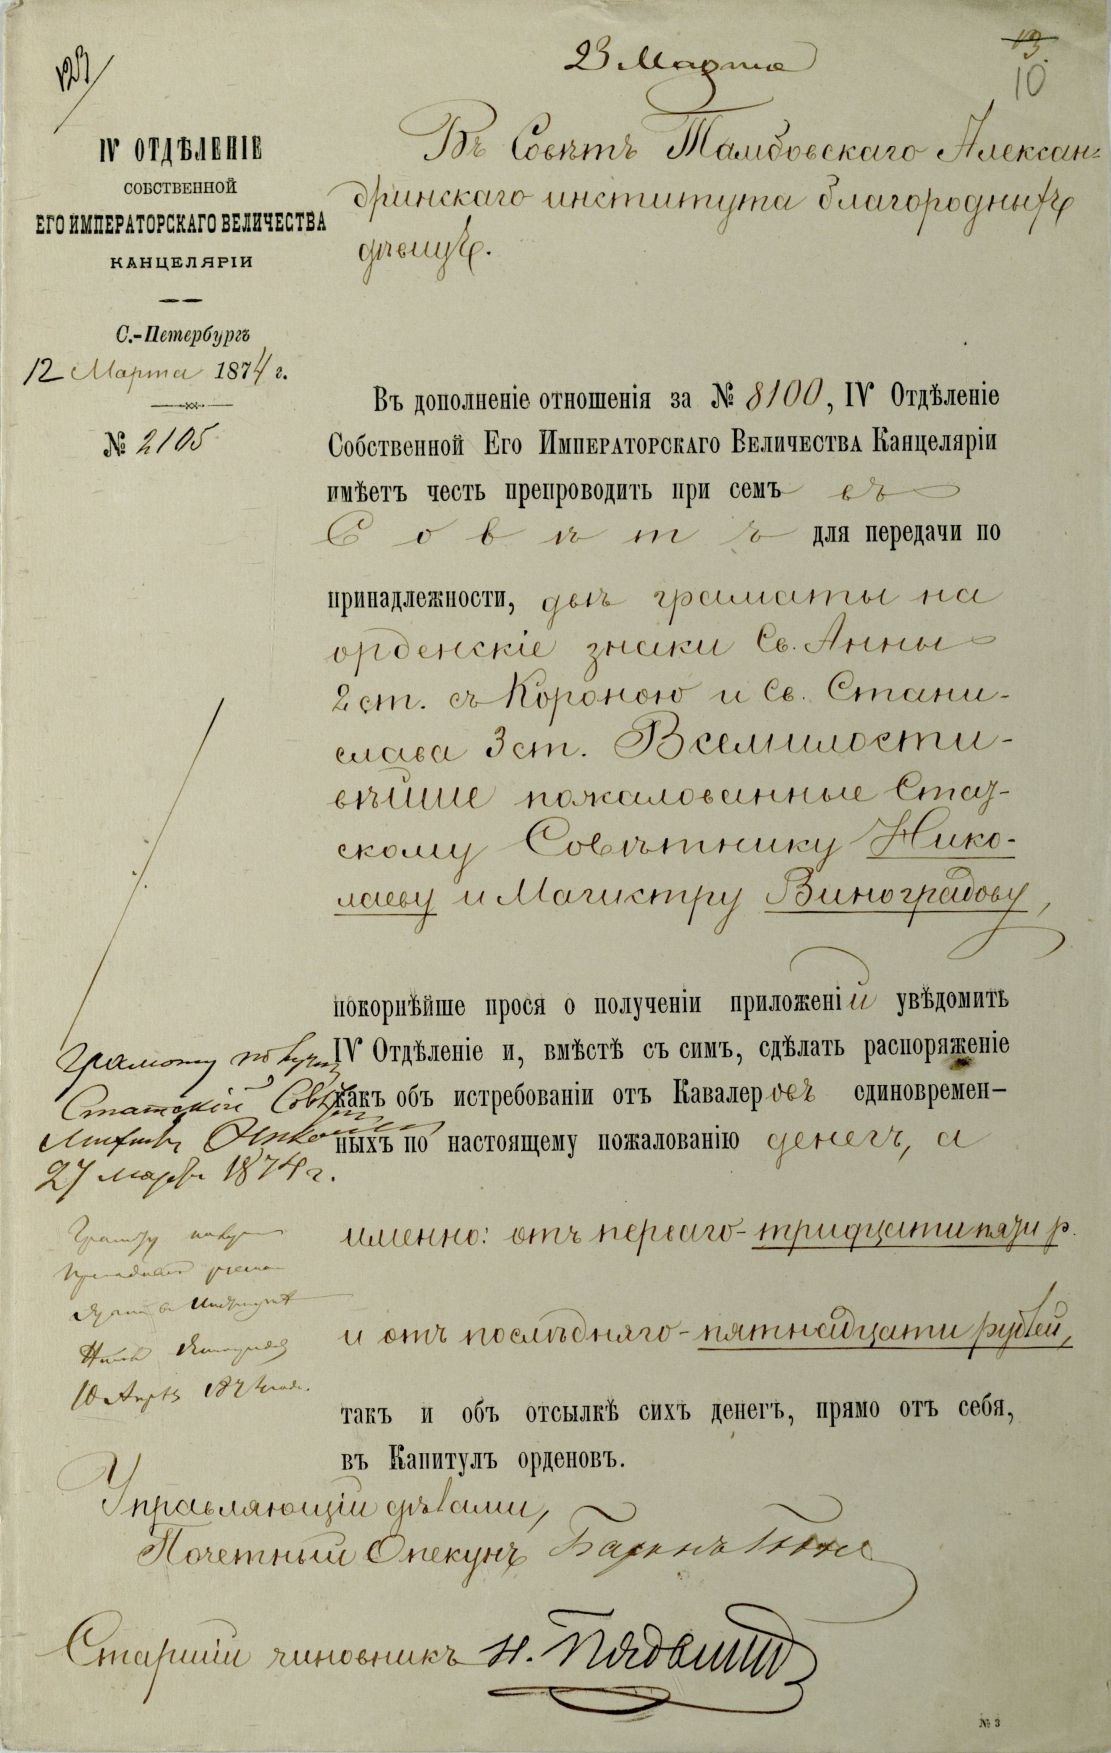 123
23 Марта
13
10
IV ОТДѢЛЕНІЕ
СОБСТВЕННОЙ
ЕГО ИМПЕРАТОРСКАГО ВЕЛИЧЕСТВА
КАНЦЕЛЯРІИ
С.-Петербургъ
12 Марта 1874 г.
№ 2105
Въ Совѣтъ Тамбовскаго Алексан-
дринскаго института благородныхъ
дѣвицъ.
Въ дополненіе отношенія за № 8100, IV Отдѣленіе
Собственной Его Императорскаго Величества Канцеляріи
имѣетъ честь препроводить при семъ въ
Совѣтъ для передачи по
принадлежности, двѣ граматы на
орденскіе знаки Св. Анны
2 ст. съ Короною и Св. Стани-
слава 3 ст. Всемилости-
вѣйше пожалованные Стат-
скому Совѣтнику Нико-
лаеву и Магистру Виноградову,
покорнѣйше прося о полученіи приложеній увѣдомить
IV Отдѣленіе и, вмѣстѣ съ симъ, сдѣлать распоряженіе
какъ объ истребованіи отъ Кавалеровъ единовремен-
ныхъ по настоящему пожалованію денегъ, а
именно: отъ перваго - тридцати пяти р.
и отъ послѣдняго - пятнадцати рублей,
такъ и объ отсылкѣ сихъ денегъ, прямо отъ себя,
въ Капитулъ орденовъ.
Грамоту получилъ
Статскій Совѣт.
27 марта 1874 г.
Грамоту
10 Апрѣ
Управляющій дѣлами,
Почетный Опекунъ Баронъ
Старшій чиновникъ Н.
№ 3